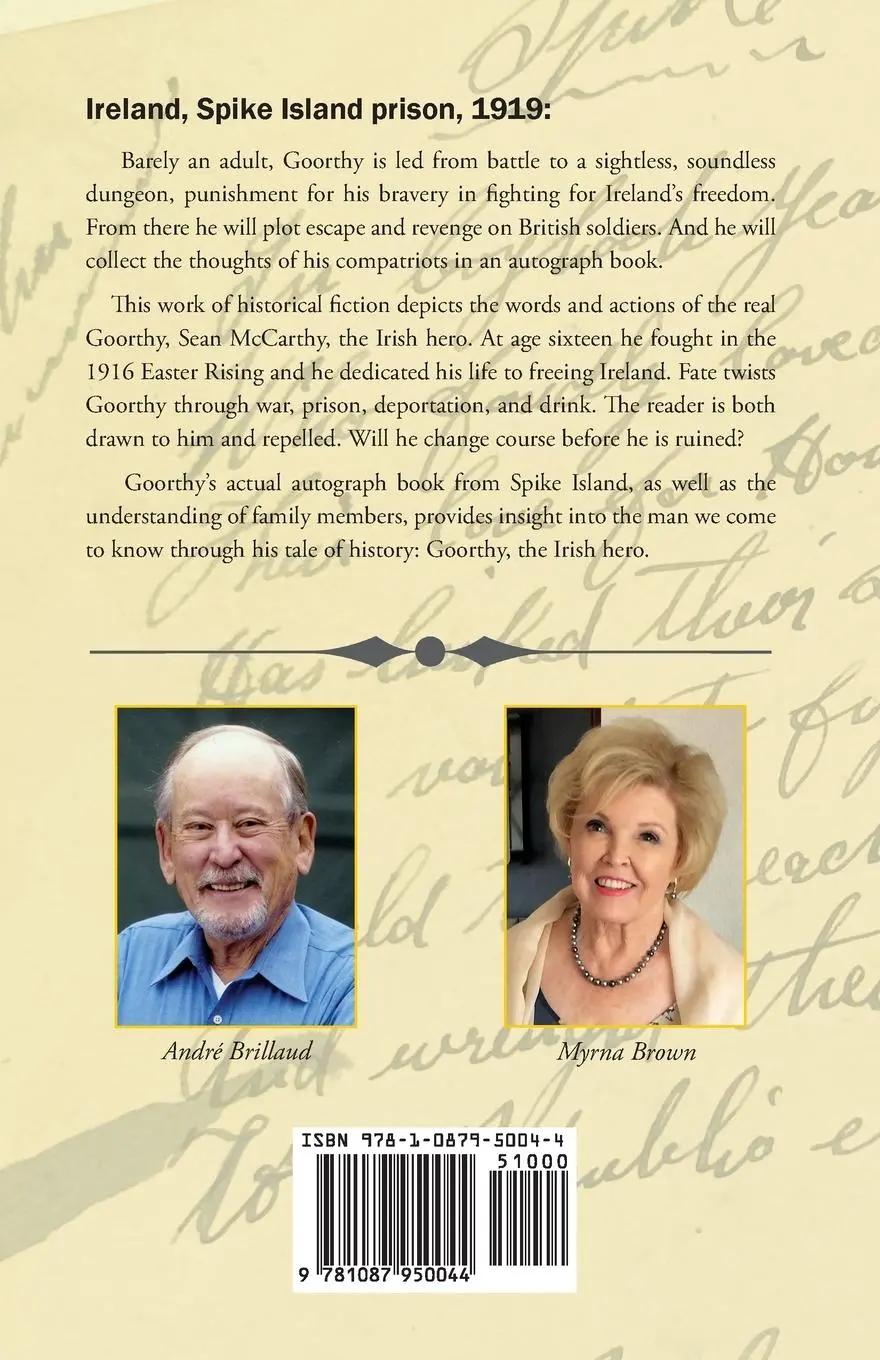 Ireland, Spike Island prison, 1919:
Barely an adult, Goorthy is led from battle to a sightless, soundless
dungeon, punishment for his bravery in fighting for Ireland's freedom.
From there he will plot escape and revenge on British soldiers. And he will
collect the thoughts of his compatriots in an autograph book.
This work of historical fiction depicts the words and actions of the real
Goorthy, Sean McCarthy, the Irish hero. At age sixteen he fought in the
1916 Easter Rising and he dedicated his life to freeing Ireland. Fate twists
Goorthy through war, prison, deportation, and drink. The reader is both
drawn to him and repelled. Will he change course before he is ruined?
Goorthy's actual autograph book from Spike Island, as well as the
understanding of family members, provides insight into the man we come
to know through his tale of history: Goorthy, the Irish hero.
André Brillaud
Myrna Brown
ISBN 978-1-0879-5004-4
51000
9 781087 950044